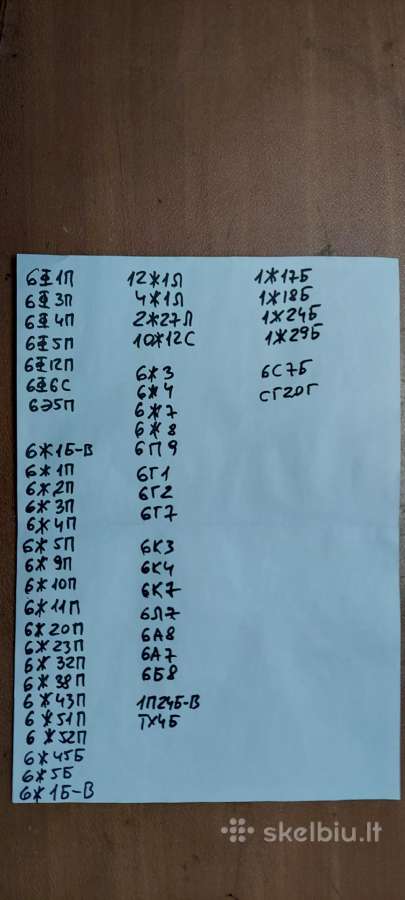 6Ф1П
6Ф3П
6Ф4П
6Ф5П
6Ф12П
6Ф6С
6Э5П
6Ж1Б-В
6Ж1П
6Ж2П
6Ж3П
6Ж4П
6Ж5П
6Ж9П
6Ж10П
6Ж11П
6Ж20П
6Ж23П
6Ж32П
6Ж38П
6Ж43П
6Ж51П
6Ж52П
6Ж45Б
6Ж5Б
6Ж1Б-В
12Ж1Л
4Ж1Л
2Ж27Л
10Ж12С
6Ж3
6Ж4
6Ж7
6Ж8
6П9
6Г1
6Г2
6Г7
6К3
6К4
6К7
6Л7
6А8
6А7
6Б8
1П24Б-В
ТХ4Б
1Ж17Б
1Ж18Б
1Ж24Б
1Ж29Б
6С7Б
СГ20Г
skelbiu.lt